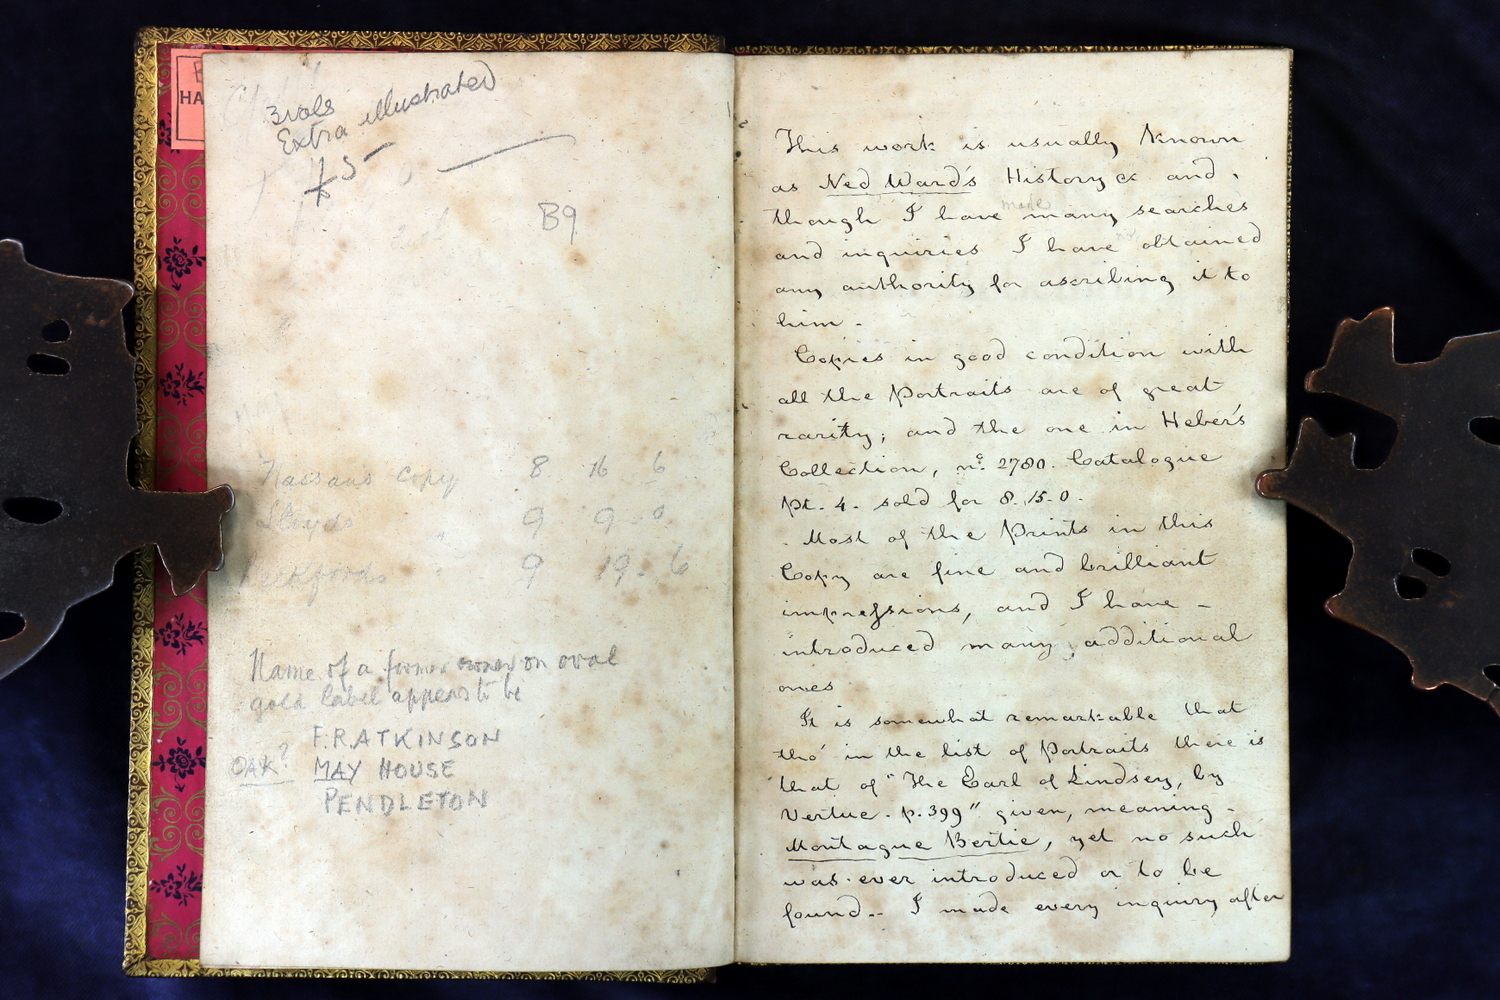 HA
3 vols
Extra illustrated
£5 –
B9
Nassau's Copy 8 16 6
Lloyds " 9 9 - 0
" 9 19 - 6
Name of a former owner on oval
gold label appears to be
F.R. ATKINSON
OAK? MAY HOUSE
PENDLETON
This work is usually known
as Ned Ward's History &c and,
though I have many searches
made
and inquiries I have obtained
any authority for ascribing it to
him -
Copies in good condition with
all the Portraits are of great
rarity; and the one in Heber's
Collection, no. 2780. Catalogue
pt. 4. sold for 8.15.0.
Most of the Prints in this
Copy are fine and brilliant
impressions, and I have -
introduced many additional
ones
It is somewhat remarkable that
tho' in the list of Portraits there is
that of "The Earl of Lindsey, by
Vertue - p. 399" given, meaning -
Montague Bertie, yet no such
was ever introduced or to be
found -- I made every inquiry after